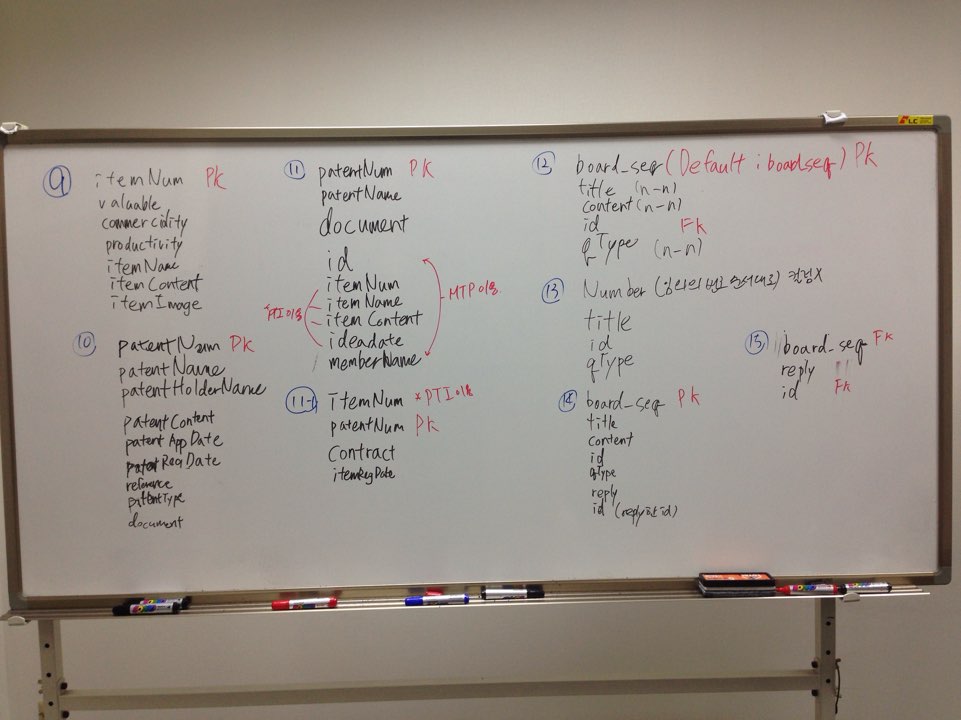 9
itemNum PK
valuable
commercidity
productivity
itemName
itemContent
itemImage
10
patentNum PK
patentName
patentHolderName
patentContent
patent AppDate
patent RegDate
reference
patentType
document
11
patentNum PK
patentName
document
id
itemNum
itemName
item Content
ideadate
memberName
PTI이용
MTP이용.
11-1
itemNum *PTI이용
patentNum PK
Contract
itemRegDate
12
board_seq (Default : boardseq) PK
title (n-n)
content (n-n)
id FK
qType (n-n)
13
Number (임의의 번호 순서대로) 컬럼X
title
id
qType
14
board_seq PK
title
content
id
qType
reply
id (reply한 id)
15
board_seq FK
reply
id FK